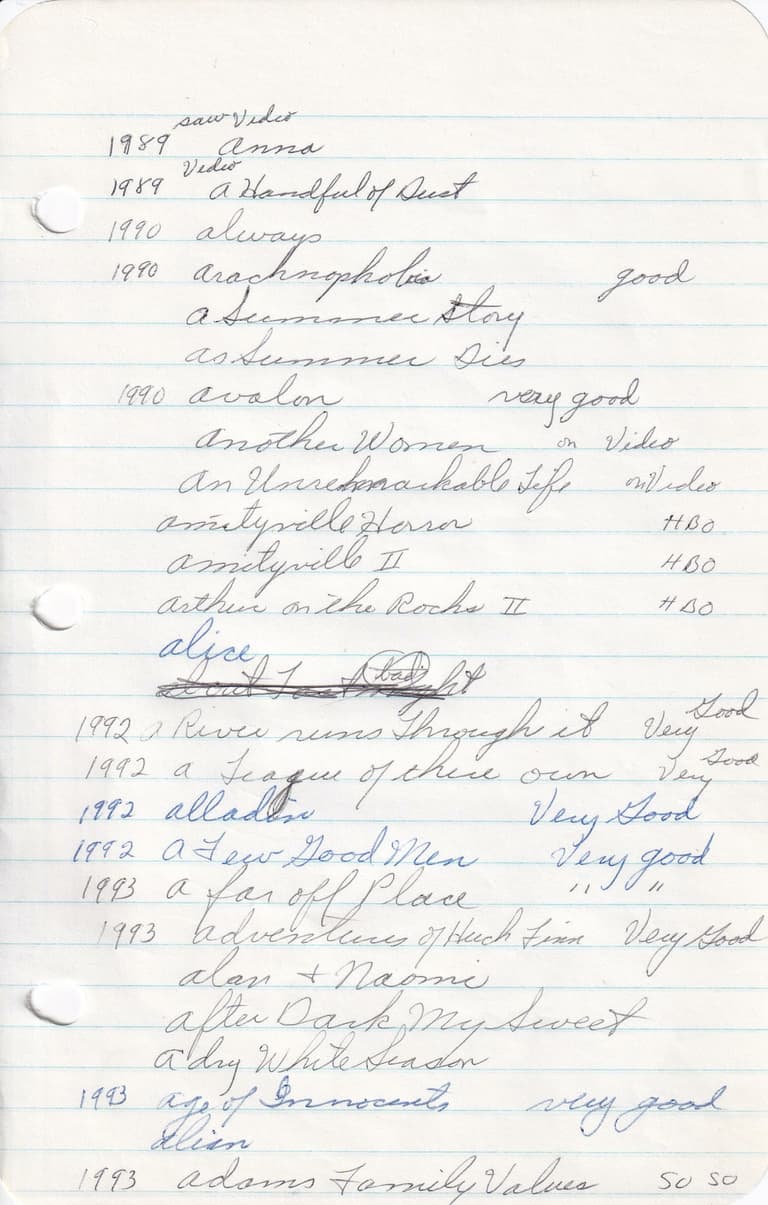 saw Video
1989 Anna
Video
1989 A Handful of Dust
1990 Always
1990 Arachnophobia good
A Summer Story
As Summer Dies
1990 Avalon very good
Another Women on Video
An Unremarkable Life on Video
Amityville Horror HBO
Amityville II HBO
Arthur on the Rocks II HBO
Alice
About Last Night (bad)
1992 A River runs Through it Very Good
1992 A League of there own Very Good
1992 Alladin Very Good
1992 A Few Good Men Very good
1993 A far off Place " "
1993 Adventures of Huck Finn Very Good
Alan + Naomi
After Dark My Sweet
A dry White Season
1993 Age of Innocents very good
Alien
1993 Adams Family Values so so